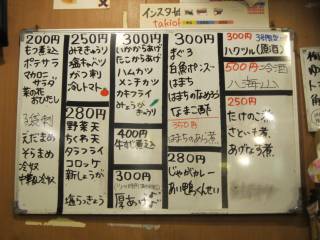 インスタ
200円
もつ煮込
ポテサラ
マカロニ
サラダ
菜の花
おひたし
えだまめ
そらまめ
冷奴
中華冷奴
250円
みそきゅうり
塩キャベツ
がつ刺
冷しトマト
280円
野菜天
ちくわ天
タラフライ
コロッケ
新しょうが
塩らっきょう
300円
いかからあげ
たこからあげ
ハムカツ
メンチカツ
カキフライ
みょうが
きゅうり
400円
牛すじ煮込
300円
厚あげ
300円
まぐろ
白魚ポンズ
はまち
はまちのなめろう
なまこ酢
350円
はまちのあら煮
280円
じゃがカレー
あい鴨くんせい
300円
ハクツル(原酒)
500円 冷酒
八海山
250円
たけのこ煮
さといも煮
あげなす煮